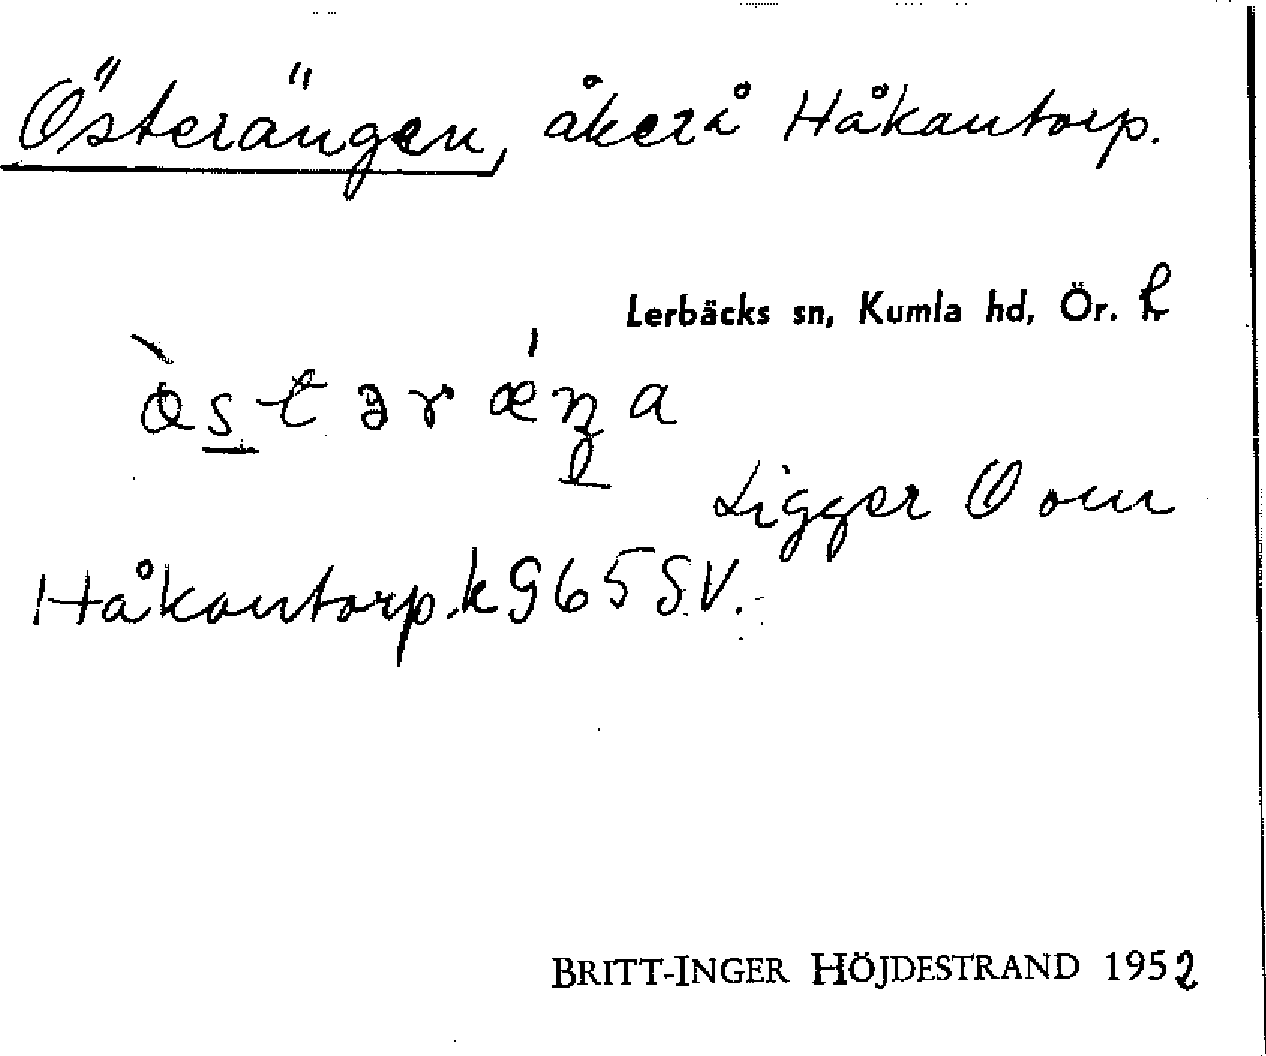 Österängen, åker å Håkantorp.
Lerbäcks sn, Kumla hd, Ör. l
Ligger Ö om
Håkantorp. k 965 S.V.
BRITT-INGER HÖJDESTRAND 1952